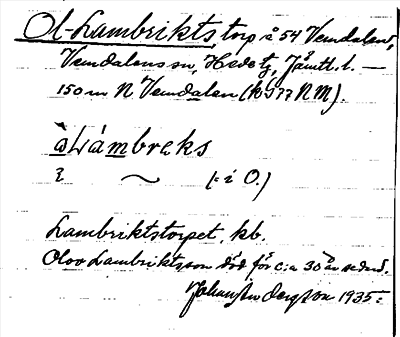 Ol-Lambriktstorp å 54 Vemdalen,
Vemdalens sn, Hede tg, Jämtl. l. —
150 m N Vemdalen (kG 77 N M).
àLámbreks
ʅ ~ (: i O.)
Lambriktstorpet, kb.
Olov Lambriktsson död för c:a 30 år sedan.
Johan Nordegson 1935.